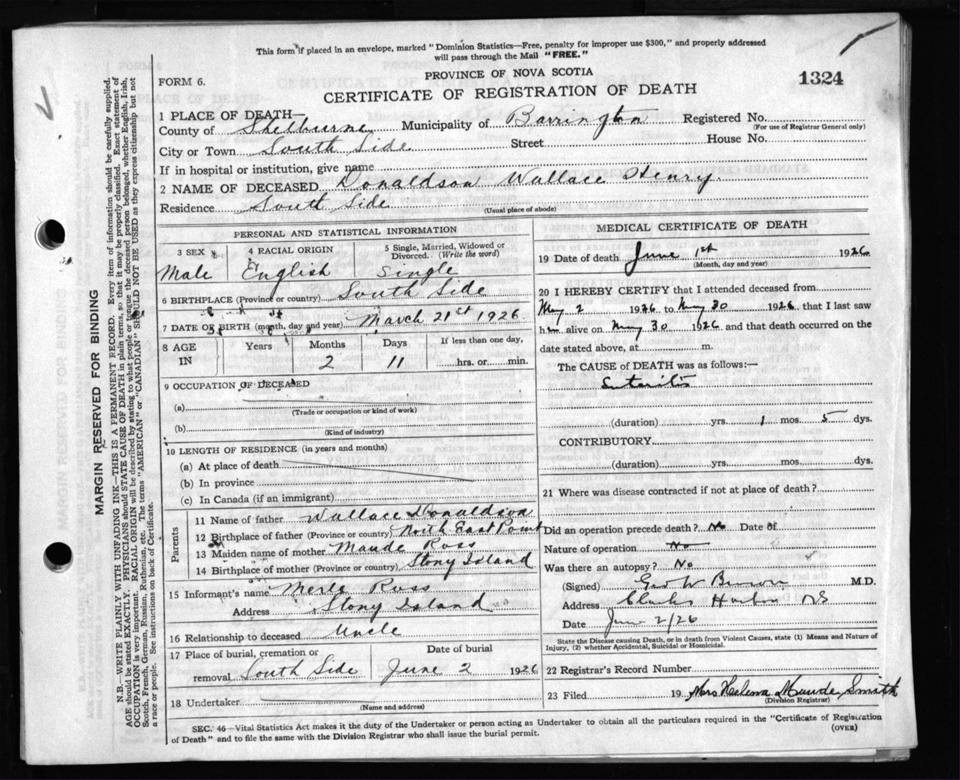 This form if placed in an envelope, marked "Dominion Statistics—Free, penalty for improper use $300," and properly addressed
will pass through the Mail "FREE."
PROVINCE OF NOVA SCOTIA
1324
FORM 6.
CERTIFICATE OF REGISTRATION OF DEATH
1 PLACE OF DEATH—
County of Shelburne Municipality of Barrington Registered No.
(For use of Registrar General only)
City or Town South Side Street House No.
If in hospital or institution, give name
2 NAME OF DECEASED Donaldson Wallace Henry.
Residence South Side
(Usual place of abode)
PERSONAL AND STATISTICAL INFORMATION
3 SEX 4 RACIAL ORIGIN 5 Single, Married, Widowed or
Divorced. (Write the word)
Male English Single
6 BIRTHPLACE (Province or country) South Side
7 DATE OF BIRTH (month, day and year) March 21st 1926.
8 AGE Years Months Days If less than one day,
IN 2 11 hrs. or min.
9 OCCUPATION OF DECEASED
(a)
(Trade or occupation or kind of work)
(b)
(Kind of industry)
10 LENGTH OF RESIDENCE (in years and months)
(a) At place of death
(b) In province
(c) In Canada (if an immigrant)
Parents
11 Name of father Wallace Donaldson
12 Birthplace of father (Province or country) North East Point
13 Maiden name of mother Maude Ross
14 Birthplace of mother (Province or country) Stony Island
15 Informant's name Merle Ross
Address Stony Island
16 Relationship to deceased Uncle
17 Place of burial, cremation or Date of burial
removal South Side June 2 1926
18 Undertaker
(Name and address)
MEDICAL CERTIFICATE OF DEATH
19 Date of death June 1st 1926
(Month, day and year)
20 I HEREBY CERTIFY that I attended deceased from
May 2 1926 to May 30 1926, that I last saw
him alive on May 30 1926 and that death occurred on the
date stated above, at m.
The CAUSE OF DEATH was as follows:—
(duration) yrs. 1 mos. 5 dys.
CONTRIBUTORY
(duration) yrs. mos. dys.
21 Where was disease contracted if not at place of death?
Did an operation precede death? No Date of
Nature of operation No
Was there an autopsy? No
(Signed) Geo W M.D.
Address Clarks Harbor NS
Date June 2/26
State the Disease causing Death, or in death from Violent Causes, state (1) Means and Nature of
Injury, (2) whether Accidental, Suicidal or Homicidal.
22 Registrar's Record Number
23 Filed 19 Mrs Helena Maude Smith
(Division Registrar)
SEC. 46—Vital Statistics Act makes it the duty of the Undertaker or person acting as Undertaker to obtain all the particulars required in the "Certificate of Registration
of Death" and to file the same with the Division Registrar who shall issue the burial permit.
(OVER)
MARGIN RESERVED FOR BINDING
N.B. WRITE PLAINLY WITH UNFADING INK—THIS IS A PERMANENT RECORD. Every item of information should be carefully supplied.
AGE should be stated EXACTLY. PHYSICIANS should STATE CAUSE OF DEATH in plain terms, so that it may be properly classified. Exact statement of
OCCUPATION is very important. RACIAL ORIGIN will be described by stating to what people or tongue the deceased person belonged, whether English, Irish,
Scotch, French, German, Russian, Ruthenian, etc. The terms "AMERICAN" or "CANADIAN" SHOULD NOT BE USED as they express citizenship but not
a race or people. See instructions on back of Certificate.